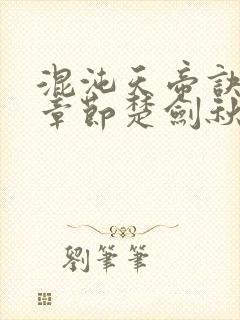 混沌天帝訣
章節楚劍秋
劉筆筆